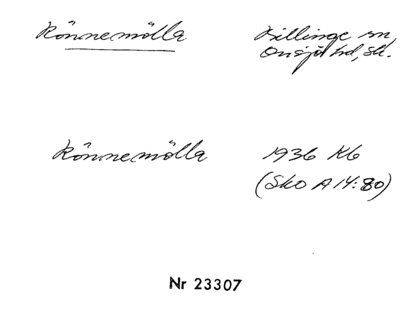 Rönnemölla Billinge sn,
Onsjö hd, Sk.
Rönnemölla 1936 K6
(Sko A 14:80)
Nr 23307